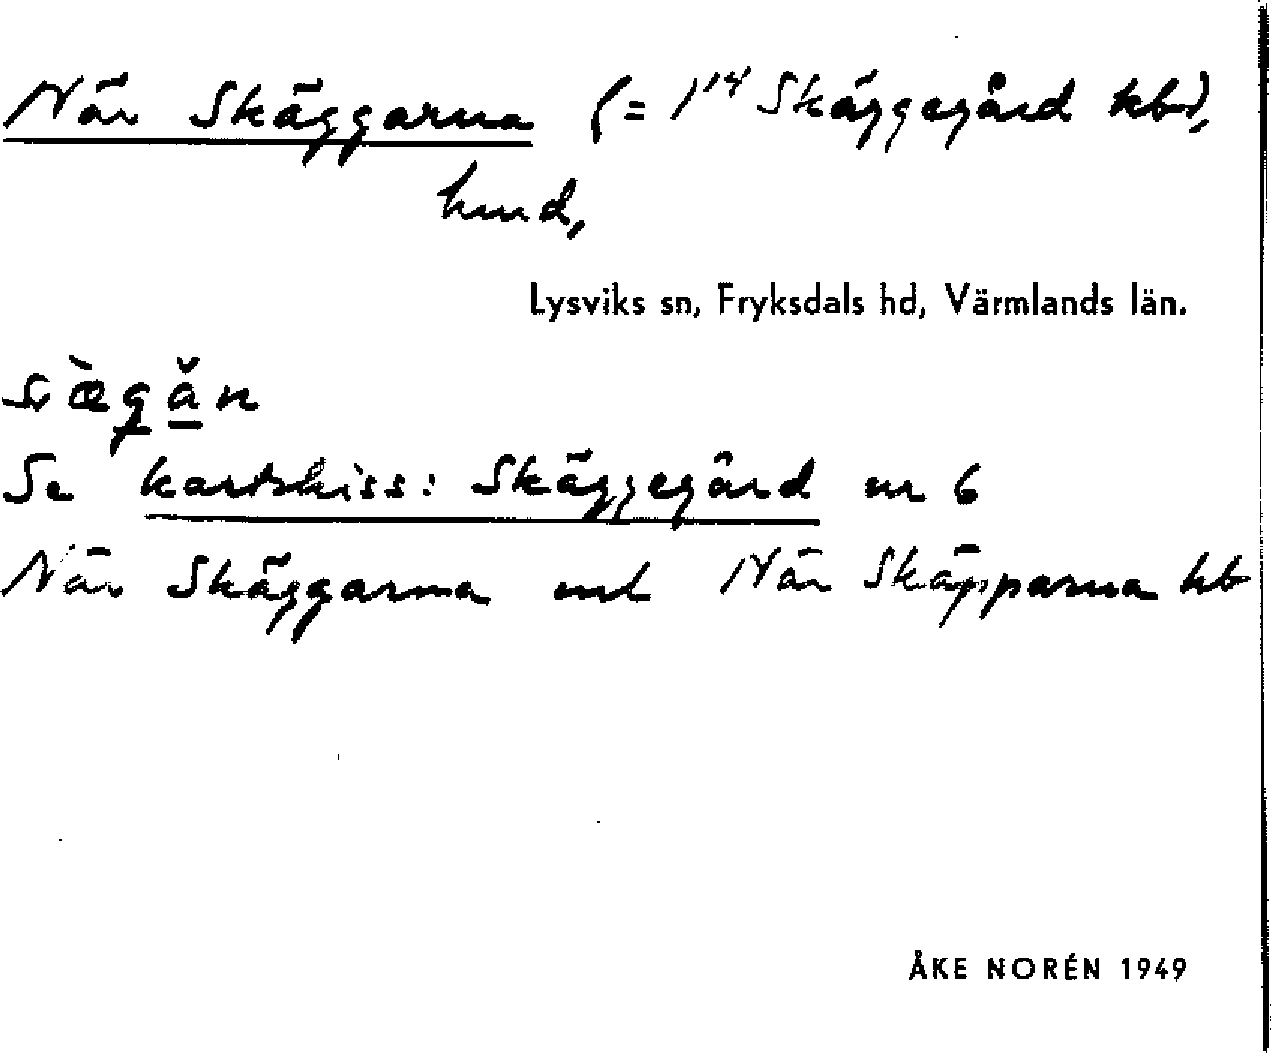 När Skäggarna (= 1¹⁴ Skäggegård kb),
hmd,
Lysviks sn, Fryksdals hd, Värmlands län.
Se kartskiss: Skäggegård nr 6
När Skäggarna ml När Skäpparna kb
ÅKE NORÉN 1949